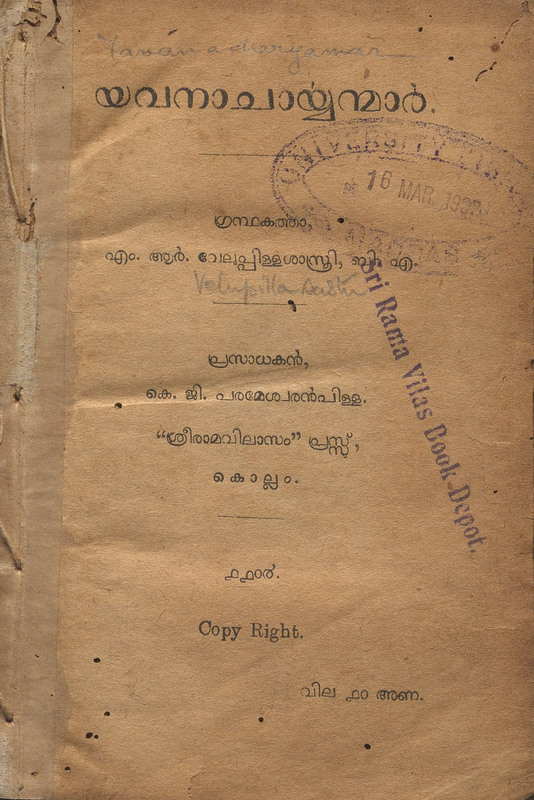 Yavanacharyamar
യവനാചാൎയ്യന്മാർ.
UNIVERSITY
16 MAR 193
MADRAS
ഗ്രന്ഥകൎത്താ,
എം. ആർ. വേലുപ്പിള്ളശാസ്ത്രി, ബി. എ.
Velupilla Sastri
Sri Rama Vilas Book Depot.
പ്രസാധകൻ,
കെ. ജി. പരമേശ്വരൻപിള്ള.
“ശ്രീരാമവിലാസം” പ്രസ്സ്,
കൊല്ലം.
൧൧൦൪.
Copy Right.
വില ൧൦ അണ.